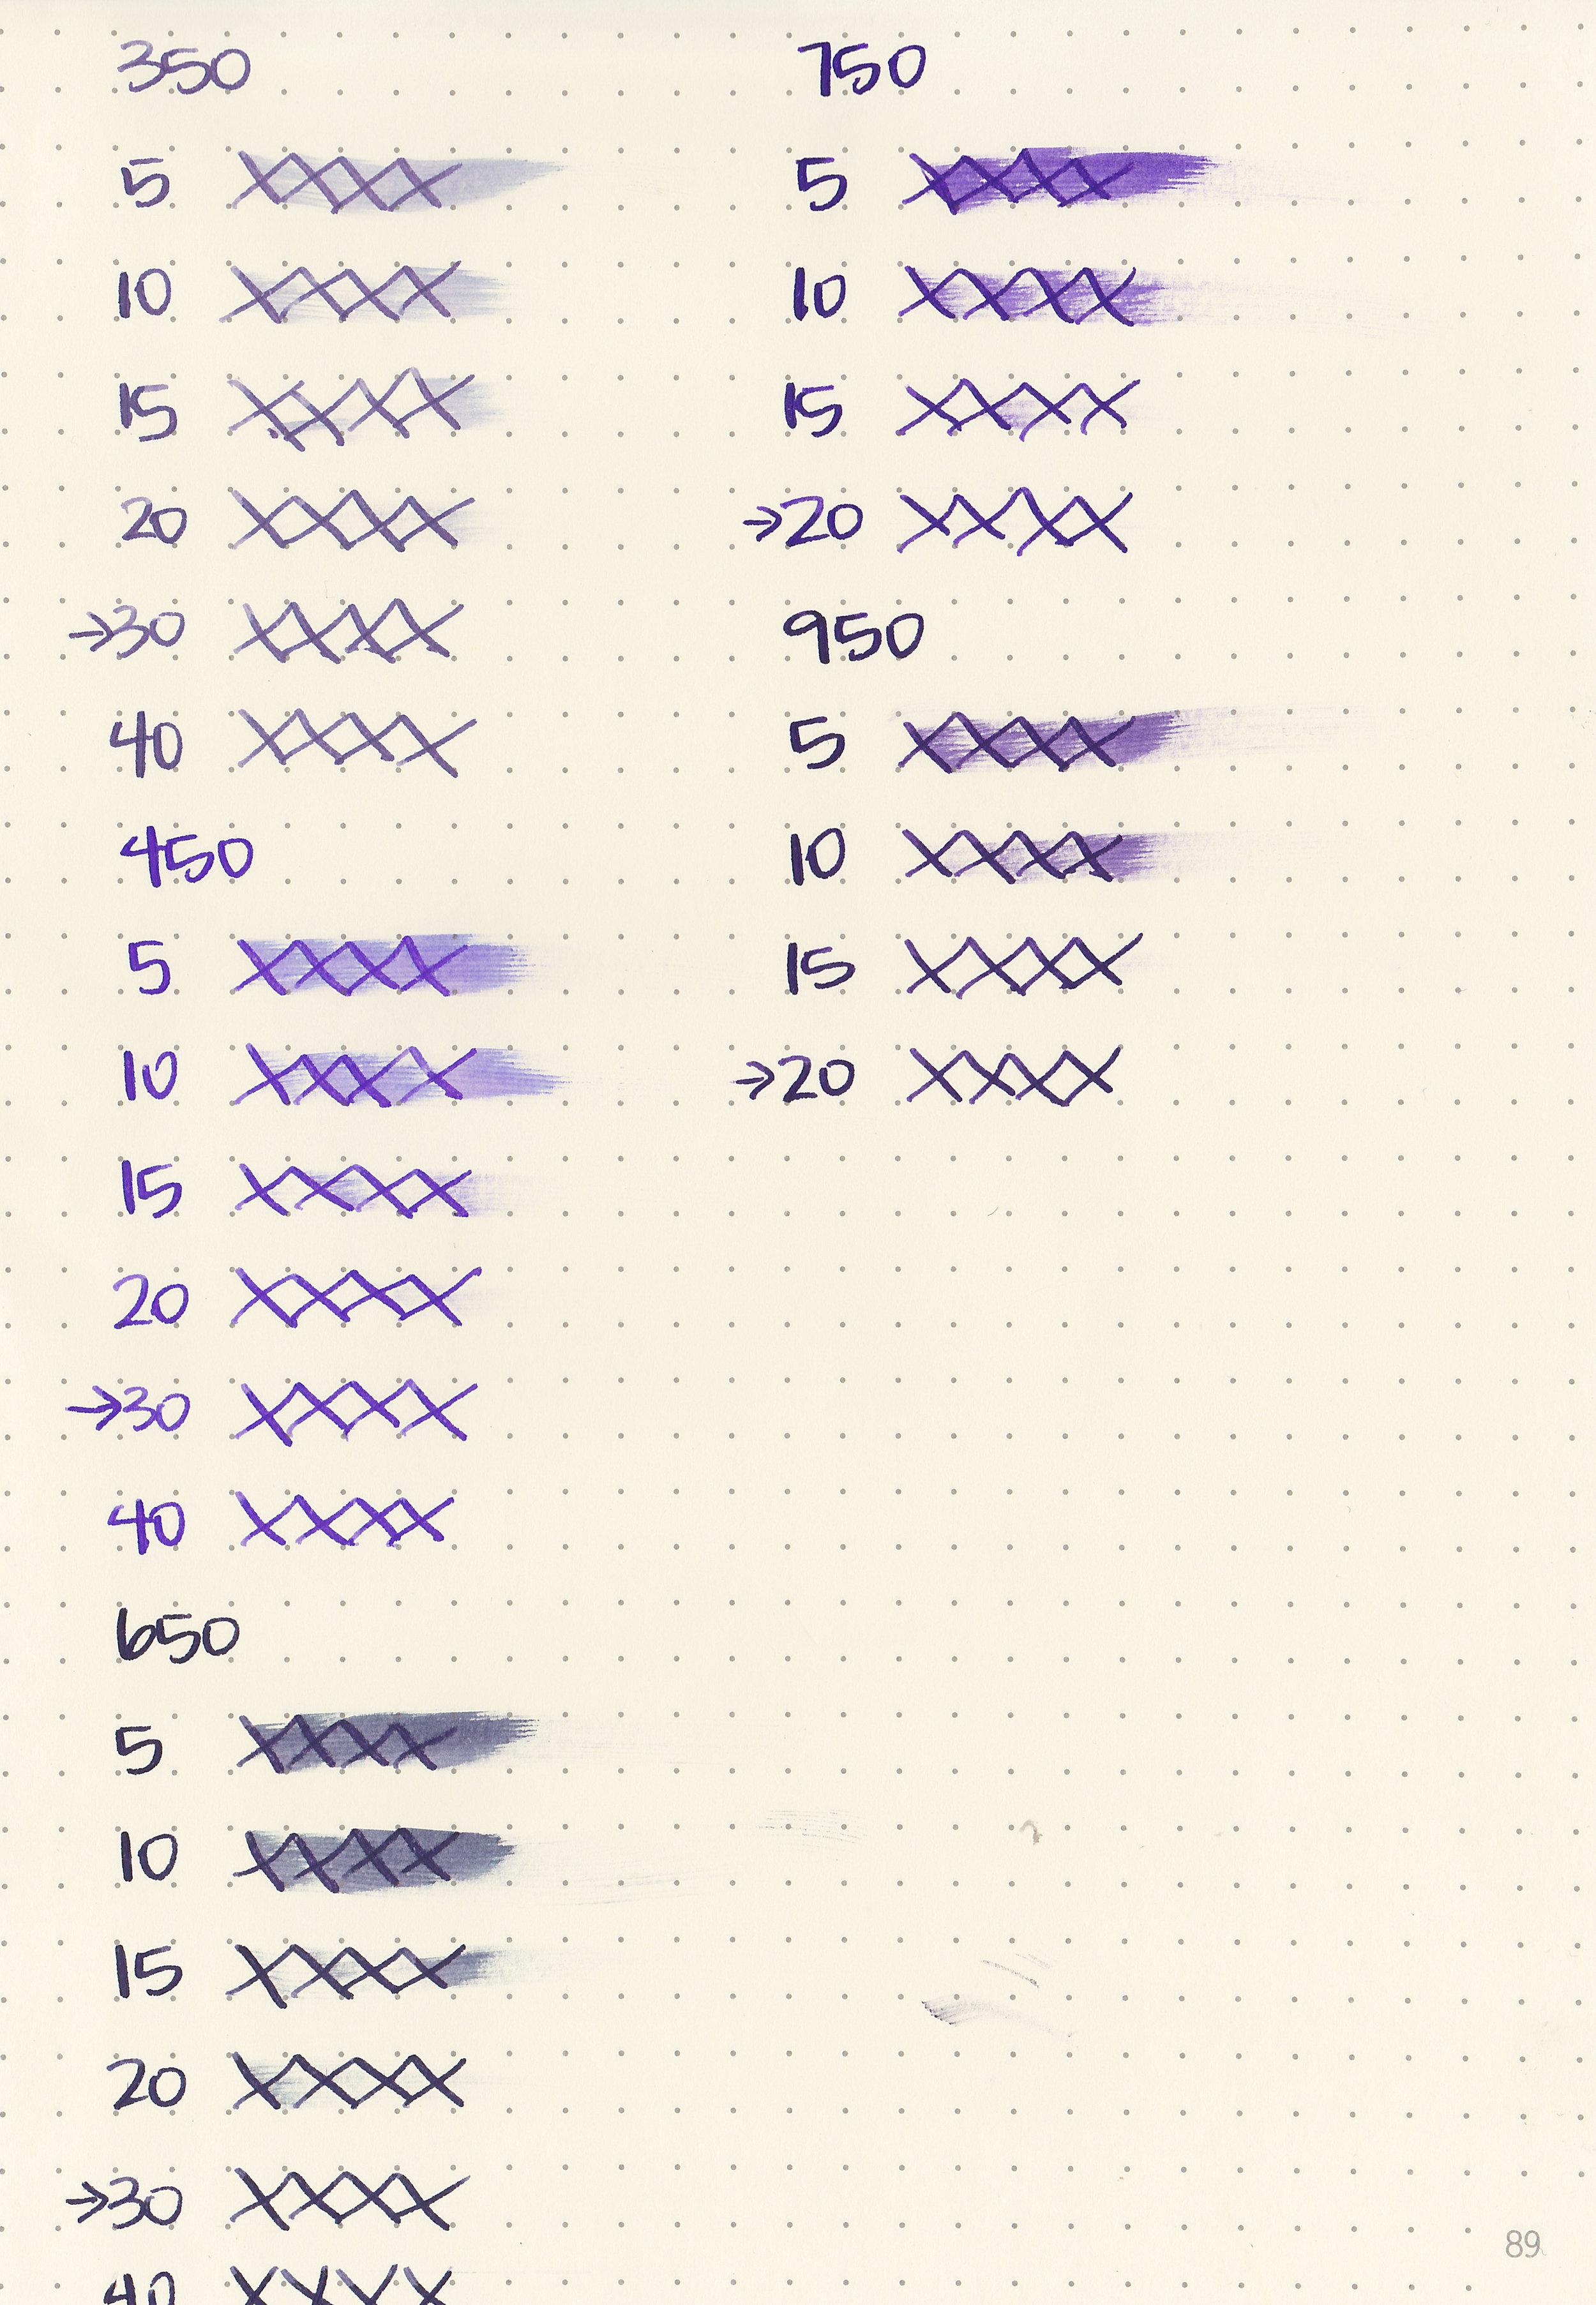 350
5 XXXX
10 XXXX
15 XXXX
20 XXXX
→30 XXXX
40 XXXX
450
5 XXXX
10 XXXX
15 XXXX
20 XXXX
→30 XXXX
40 XXXX
650
5 XXXX
10 XXXX
15 XXXX
20 XXXX
→30 XXXX
40 XXXX
750
5 XXXX
10 XXXX
15 XXXX
→20 XXXX
950
5 XXXX
10 XXXX
15 XXXX
→20 XXXX
89